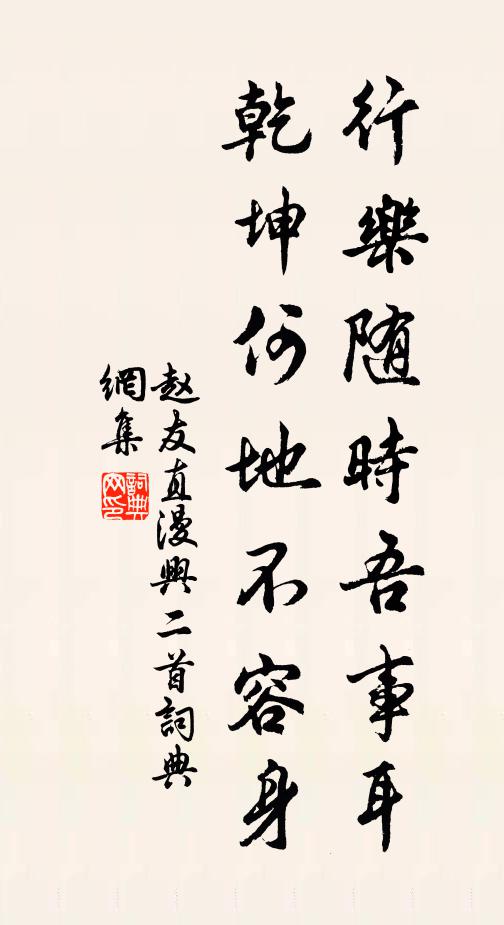 行樂随時吾事耳
乾坤何地不容身
赵友直漫興二首詞典
網集
詞典
网印